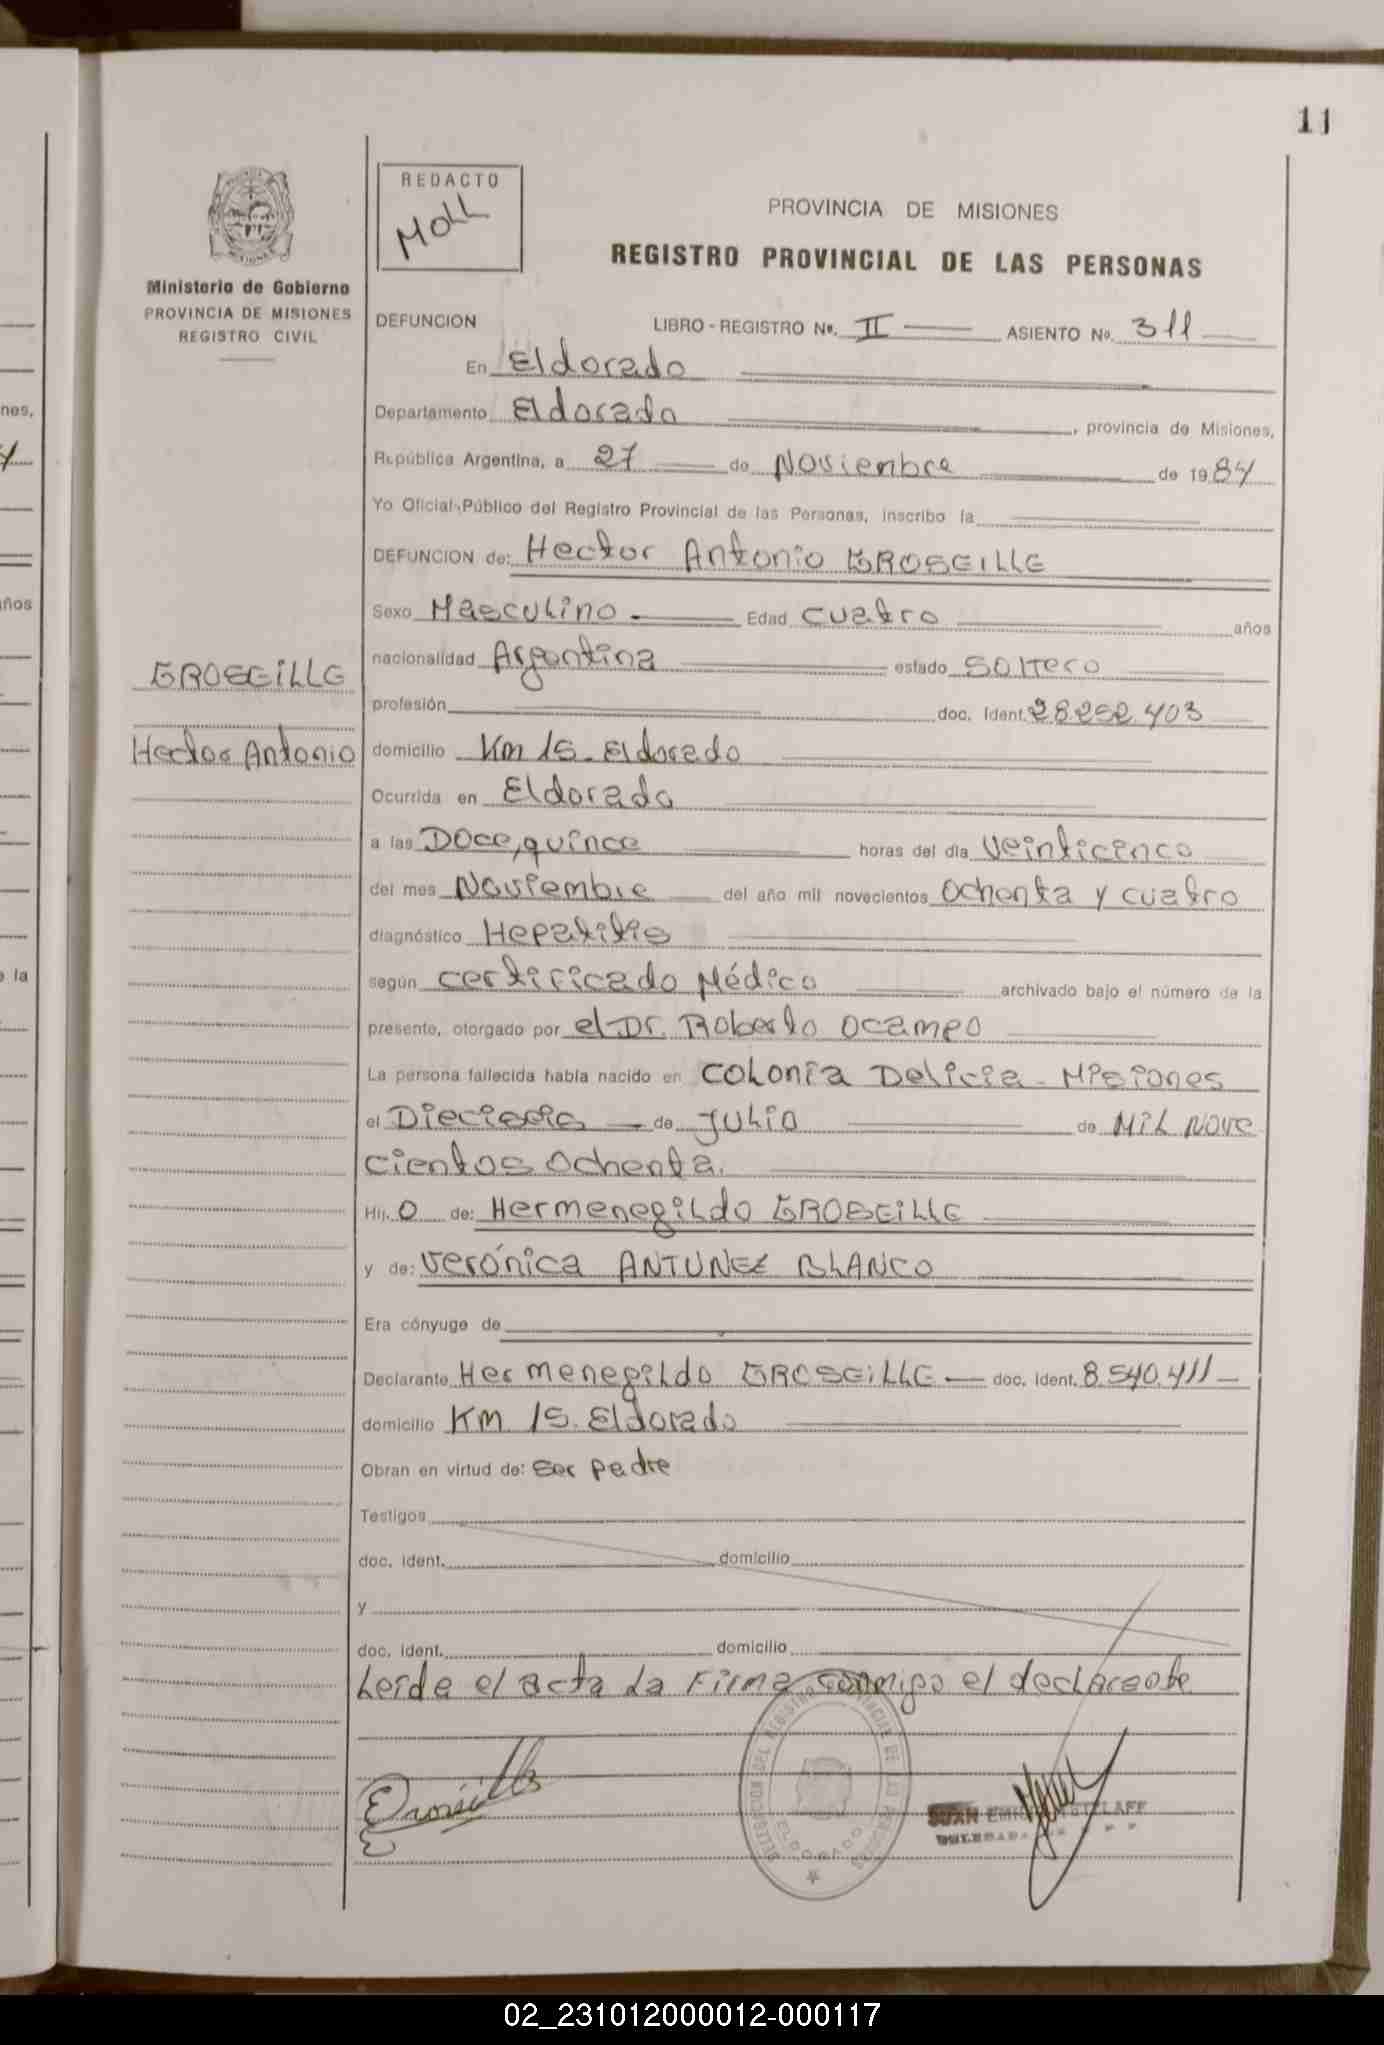 11
REDACTO
MOLL
PROVINCIA DE MISIONES
REGISTRO PROVINCIAL DE LAS PERSONAS
Ministerio de Gobierno
PROVINCIA DE MISIONES
REGISTRO CIVIL
DEFUNCION LIBRO - REGISTRO Nº. II ASIENTO Nº. 311
En Eldorado
Departamento Eldorado, provincia de Misiones,
República Argentina, a 27 de Noviembre de 1984
Yo Oficial Público del Registro Provincial de las Personas, inscribo la
DEFUNCION de: Hector Antonio GROSEILLE
Sexo Masculino Edad cuatro años
nacionalidad Argentina estado SOLTERO
profesión doc. Ident. 28.252.403
GROSEILLE
Hector Antonio
domicilio Km 15. Eldorado
Ocurrida en Eldorado
a las Doce, quince horas del día veinticinco
del mes Noviembre del año mil novecientos ochenta y cuatro
diagnóstico Hepatitis
según certificado Médico archivado bajo el número de la
presente, otorgado por el Dr. Roberto Ocampo
La persona fallecida había nacido en COLONIA Delicia - Misiones
el Dieciseis de Julio de MIL NOVE
cientos ochenta.
Hij. O de: Hermenegildo GROSEILLE
y de: Verónica ANTUNEZ BLANCO
Era cónyuge de
Declarante Hermenegildo GROSEILLE doc. Ident. 8.540.411
domicilio KM. 15. Eldorado
Obran en virtud de: ser padre
Testigos
doc. Ident. domicilio
y
doc. Ident. domicilio
Leida el acta la Firma conmigo el declarante
DELEGACION DEL REGISTRO PROVINCIAL DE LAS PERSONAS
ELDORADO
JUAN
02_231012000012-000117